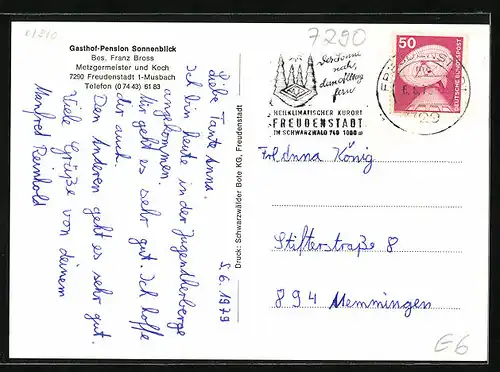 01210
7290
Gasthof-Pension Sonnenblick
Bes. Franz Bross
Metzgermeister und Koch
7290 Freudenstadt 1-Musbach
Telefon (0 74 43) 61 83
5.6.1979
Liebe Tante Anna.
Ich bin heute in der Jugendherberge
angkommen.
Mir geht es sehr gut. Ich hoffe
dir auch.
Den Anderen geht es sehr gut.
Viele Grüße von deinem
Manfred Reinhold
Druck: Schwarzwälder Bote KG, Freudenstadt
Der Sonne
nah,
dem Alltag
fern
HEILKLIMATISCHER KURORT
FREUDENSTADT
IM SCHWARZWALD 740-1000 m
50
DEUTSCHE BUNDESPOST
Frl Anna König
Stifterstraße 8
894 Memmingen
E6